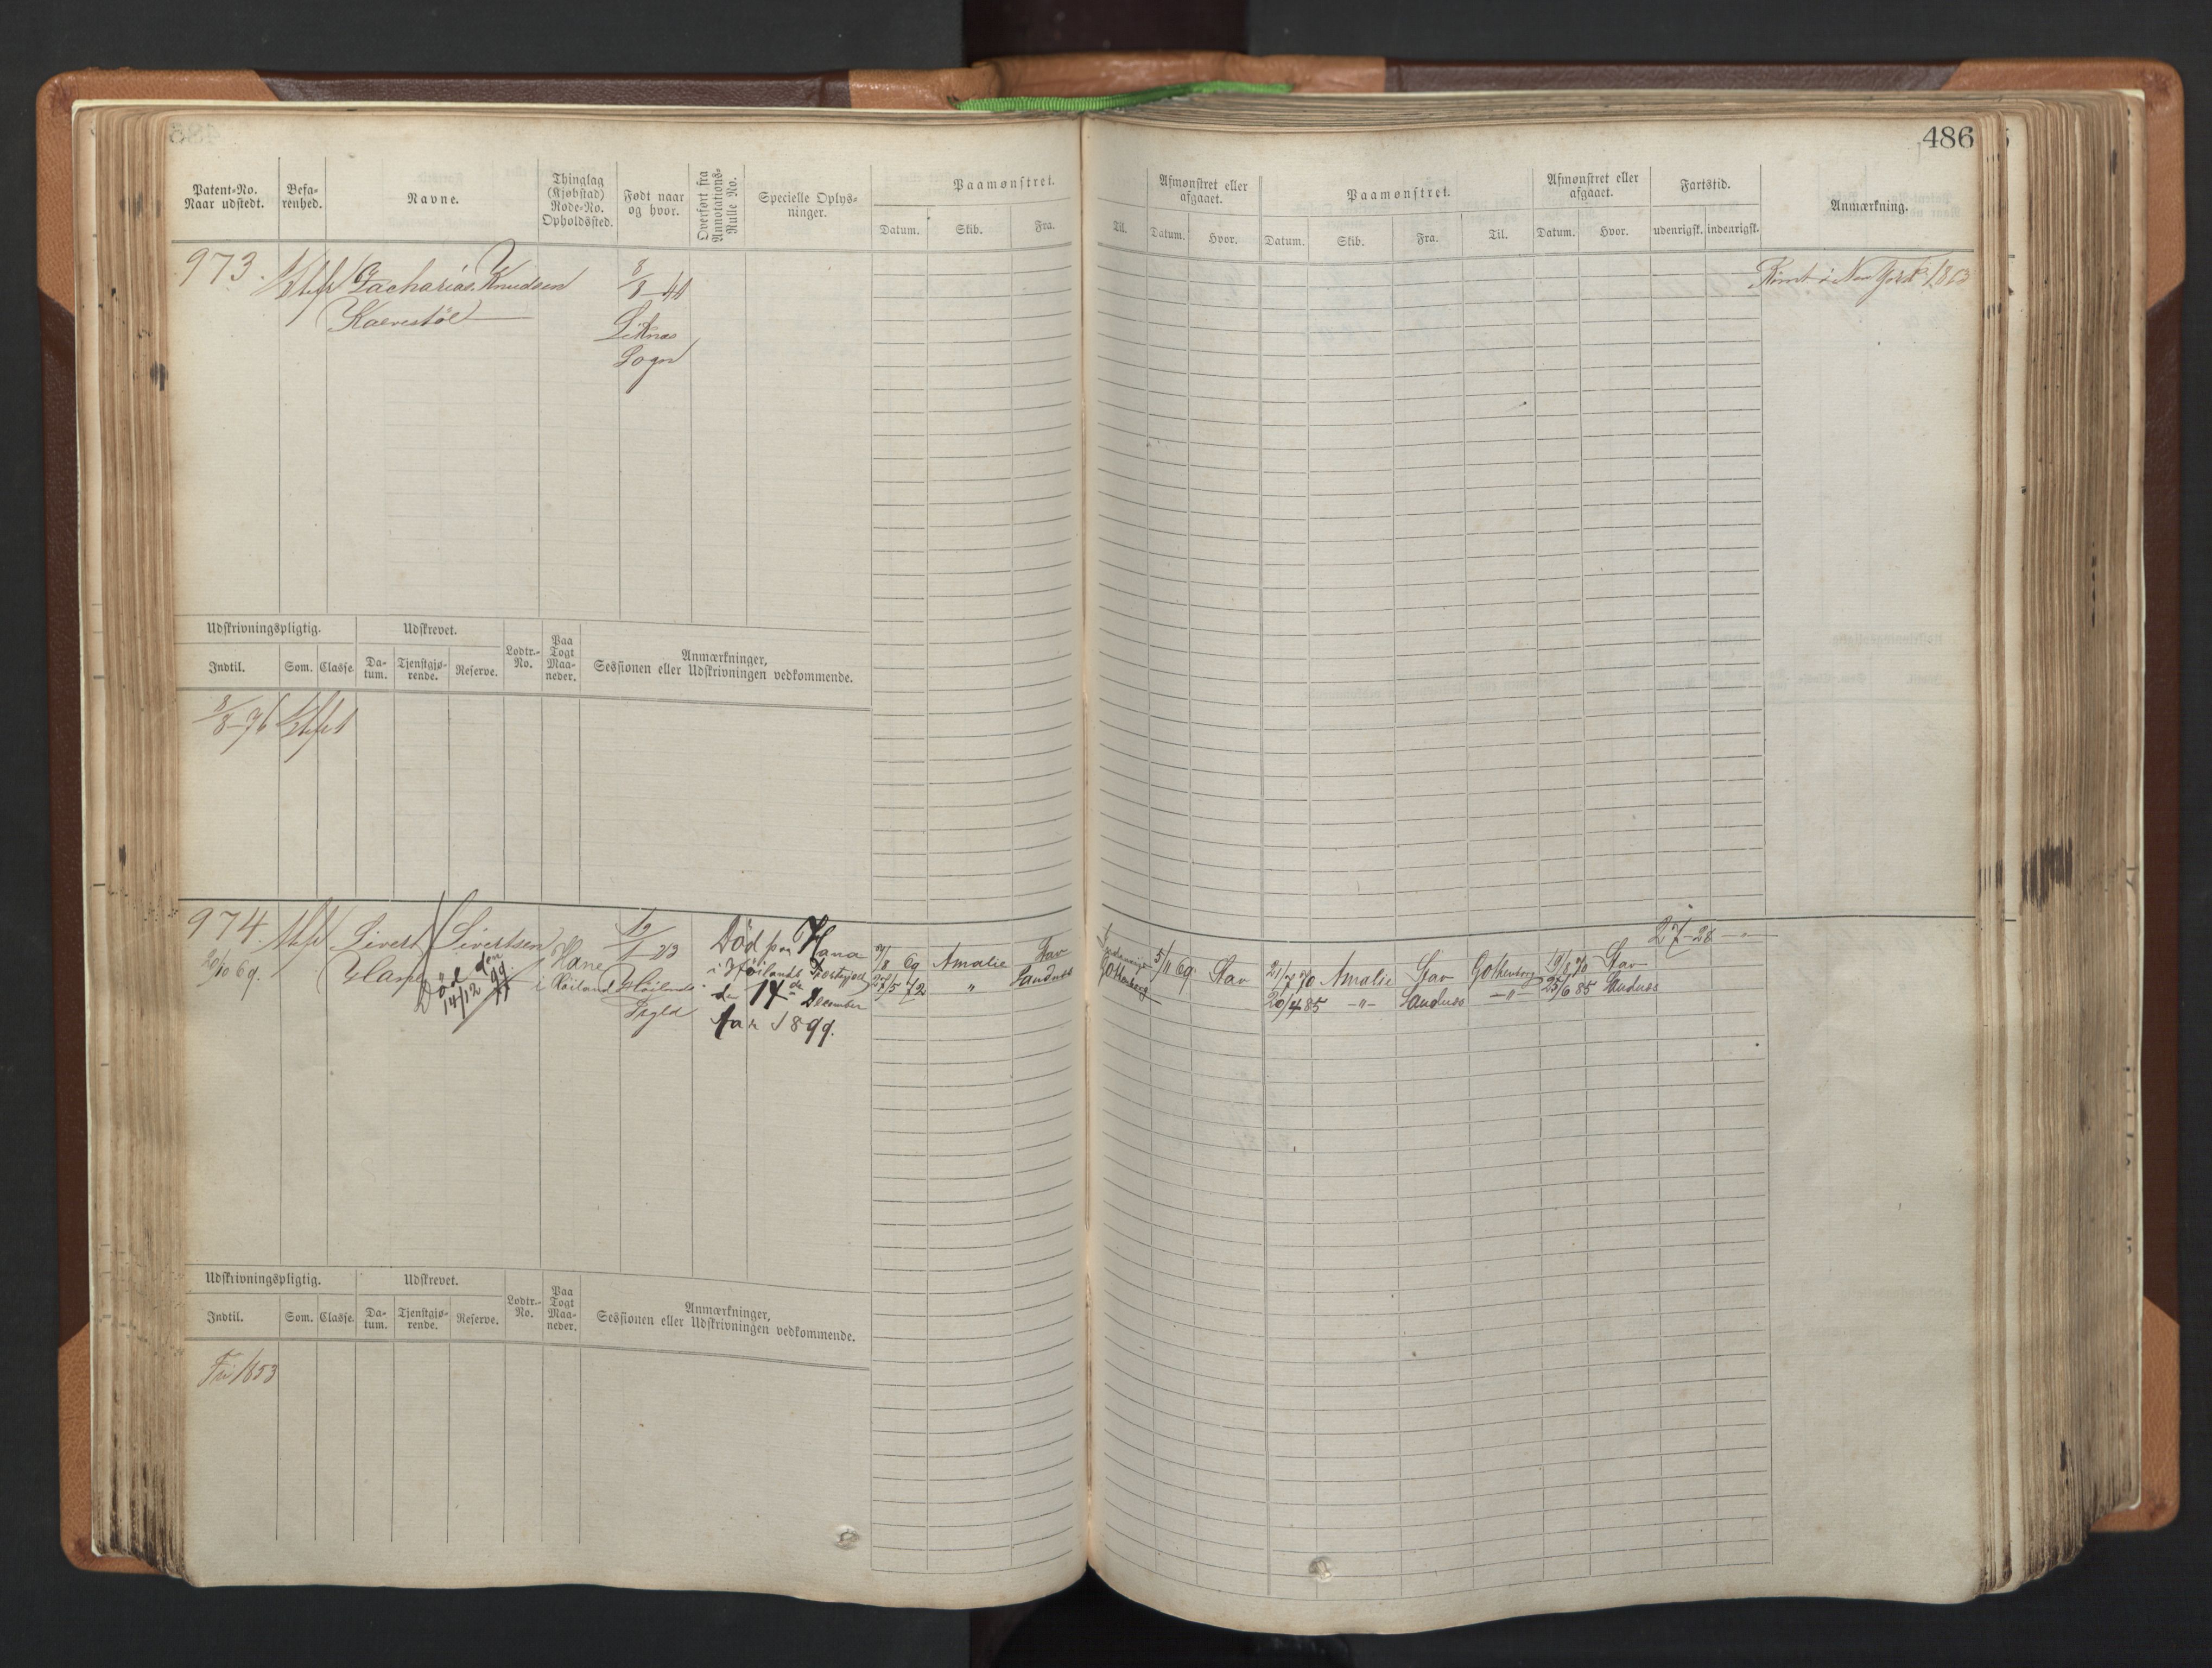 486
Patent-No. Naar udstedt.
Befa-
renhed.
Navne.
Thinglag
(Kjøbstad)
Rode-No.
Opholdssted.
Født naar
og hvor.
Overført fra
Annotations-
Rulle No.
Specielle Oplys-
ninger.
Paamønstret.
Datum. Skib. Fra.
Til.
Afmønstret eller
afgaaet.
Datum. Hvor.
Paamønstret.
Datum. Skib. Fra. Til.
Afmønstret eller
afgaaet.
Datum. Hvor.
Fartstid.
udenrigsk. indenrigsk.
Anmærkning.
973.
Zacharias Knudsen
8/8-44
Sogn
Rømt i New York 1863
Udskrivningspligtig.
Indtil. Som. Classe.
Udskrevet.
Da-
tum.
Tjenstgjø-
rende.
Reserve.
Lodtr.-
No.
Paa
Togt
Maa-
neder.
Anmærkninger,
Sessionen eller Udskrivningen vedkommende.
8/8-76
974.
20/10 69.
Sivert Sivertsen
Hane
Død den
14/12 99
Hane
i Høiland
19/1-23
Høilands
Død paa Hana
i Høilands Præstegjeld
d. 14de December
Aar 1899.
69 Amalie Stav
27/5 72 " Sandnes
Gothenberg
5/11 69 Stav
21/7 70 Amalie Stav Gothenborg 19/8 70 Stav
20/4 85 -"- Sandnes -"- 25/6 85 Sandnes
27-26
Udskrivningspligtig.
Indtil. Som. Classe.
Udskrevet.
Da-
tum.
Tjenstgjø-
rende.
Reserve.
Lodtr.-
No.
Paa
Togt
Maa-
neder.
Anmærkninger,
Sessionen eller Udskrivningen vedkommende.
Fri 1853